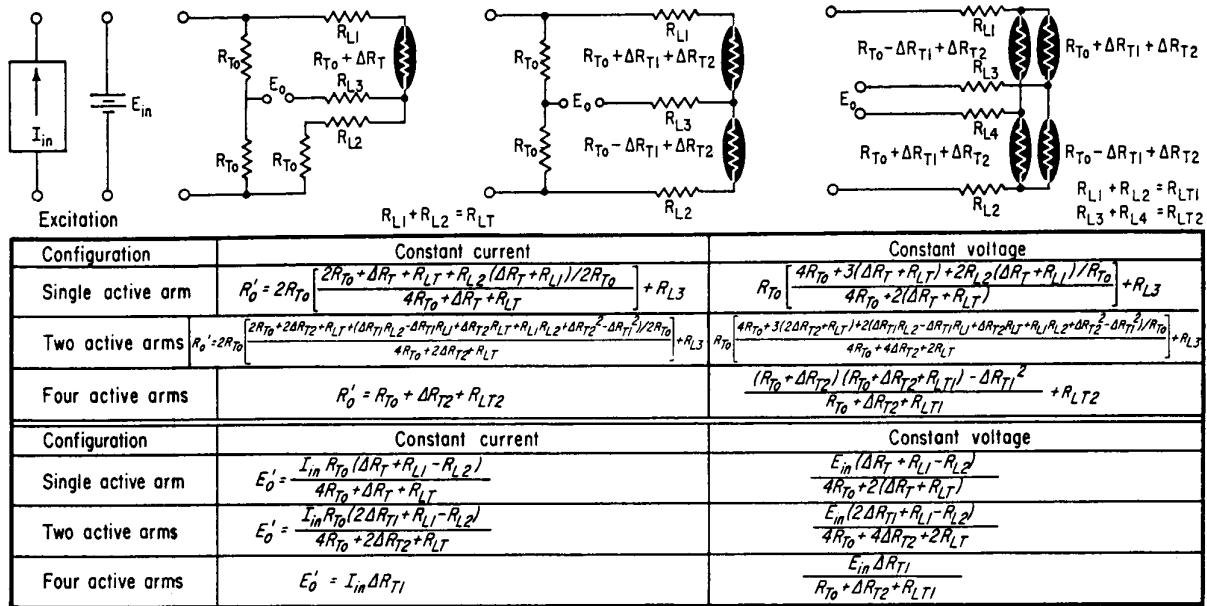 I_in
E_in
Excitation
R_L1
R_To
R_To + ΔR_T
R_L3
E_o
R_L2
R_To
R_To
R_L1 + R_L2 = R_LT
R_L1
R_To
R_To + ΔR_T1 + ΔR_T2
E_o
R_L3
R_To
R_To − ΔR_T1 + ΔR_T2
R_L2
R_L1
R_To − ΔR_T1 + ΔR_T2
R_To + ΔR_T1 + ΔR_T2
R_L3
E_o
R_L4
R_To + ΔR_T1 + ΔR_T2
R_To − ΔR_T1 + ΔR_T2
R_L2
R_L1 + R_L2 = R_LT1
R_L3 + R_L4 = R_LT2
Configuration Constant current Constant voltage
Single active arm R'_o = 2R_To [(2R_To + ΔR_T + R_LT + R_L2(ΔR_T + R_L1)/2R_To) / (4R_To + ΔR_T + R_LT)] + R_L3 R_To [(4R_To + 3(ΔR_T + R_LT) + 2R_L2(ΔR_T + R_L1)/R_To) / (4R_To + 2(ΔR_T + R_LT))] + R_L3
Two active arms R_o' = 2R_To [(2R_To + 2ΔR_T2 + R_LT + (ΔR_T1 R_L2 − ΔR_T1 R_L1 + ΔR_T2 R_LT + R_L1 R_L2 + ΔR_T2² − ΔR_T1²)/2R_To) / (4R_To + 2ΔR_T2 + R_LT)] + R_L3 R_To [(4R_To + 3(2ΔR_T2 + R_LT) + 2(ΔR_T1 R_L2 − ΔR_T1 R_L1 + ΔR_T2 R_LT + R_L1 R_L2 + ΔR_T2² − ΔR_T1²)/R_To) / (4R_To + 4ΔR_T2 + 2R_LT)] + R_L3
Four active arms R'_o = R_To + ΔR_T2 + R_LT2 ((R_To + ΔR_T2)(R_To + ΔR_T2 + R_LT1) − ΔR_T1²) / (R_To + ΔR_T2 + R_LT1) + R_LT2
Configuration Constant current Constant voltage
Single active arm E'_o = I_in R_To (ΔR_T + R_L1 − R_L2) / (4R_To + ΔR_T + R_LT) E_in (ΔR_T + R_L1 − R_L2) / (4R_To + 2(ΔR_T + R_LT))
Two active arms E'_o = I_in R_To (2ΔR_T1 + R_L1 − R_L2) / (4R_To + 2ΔR_T2 + R_LT) E_in (2ΔR_T1 + R_L1 − R_L2) / (4R_To + 4ΔR_T2 + 2R_LT)
Four active arms E'_o = I_in ΔR_T1 E_in ΔR_T1 / (R_To + ΔR_T2 + R_LT1)